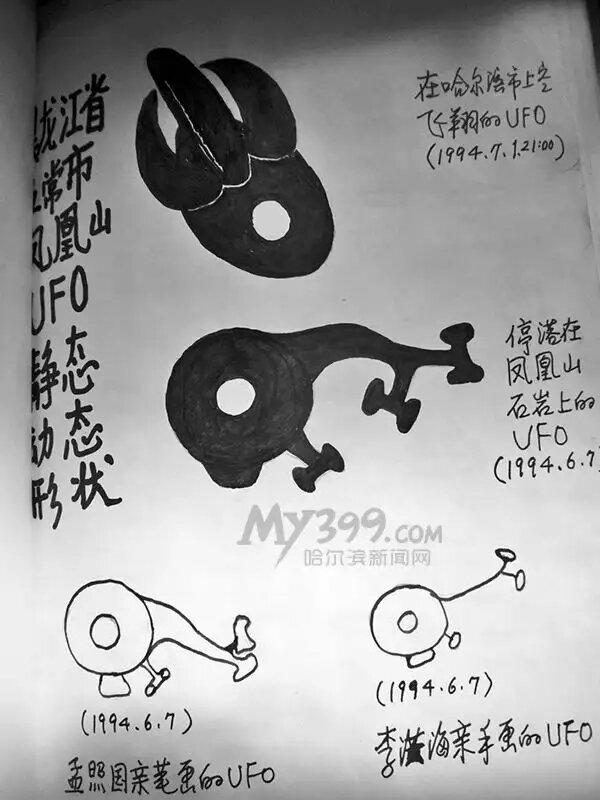 龙江省
常市
凤凰山
UFO
静态
动态
形状
在哈尔滨市上空
飞翔的UFO
(1994.7.1.21:00)
停落在
凤凰山
石岩上的
UFO
(1994.6.7)
My399.COM
哈尔滨新闻网
(1994.6.7)
孟照国亲笔画的UFO
(1994.6.7)
李洪海亲手画的UFO